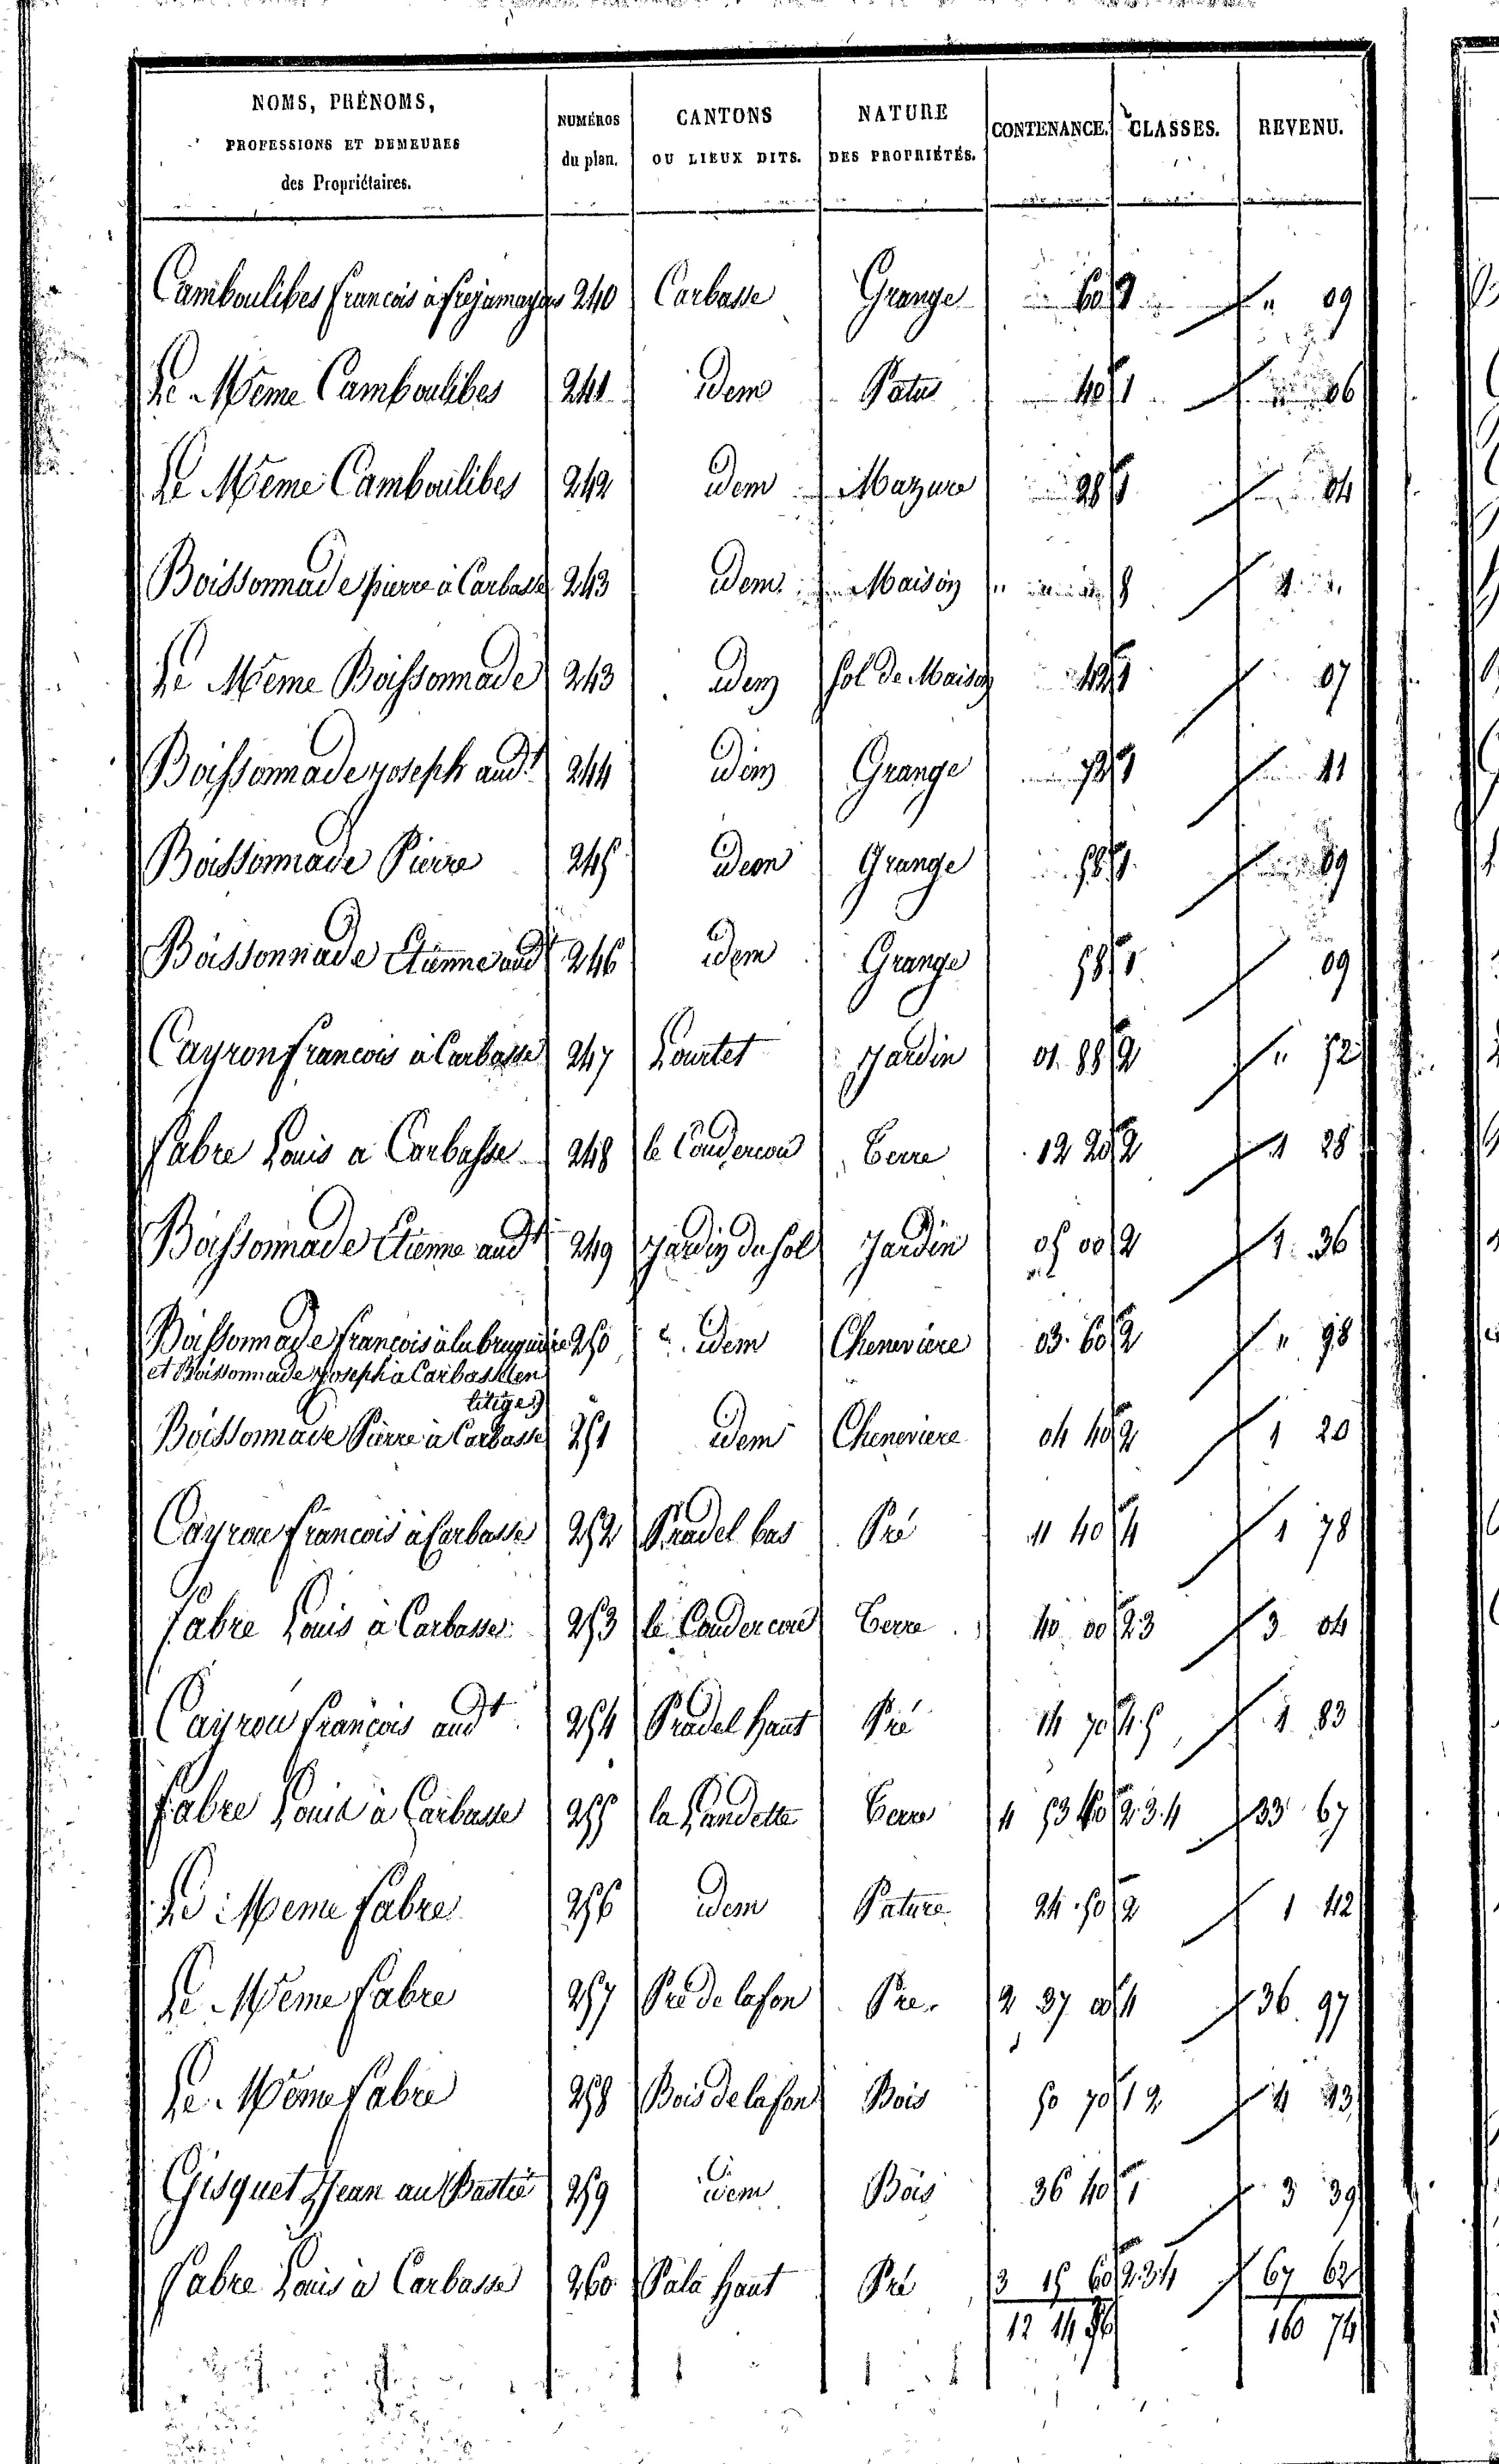 NOMS, PRÉNOMS, PROFESSIONS ET DEMEURES des Propriétaires. NUMÉROS du plan. CANTONS OU LIEUX DITS. NATURE DES PROPRIÉTÉS. CONTENANCE. CLASSES. REVENU.
Camboulibes francois à frejamayou 240 Carbasse Grange 60 1 " 09
Le Meme Camboulibes 241 idem Patus 40 1 06
Le Meme Camboulibes 242 idem Mazure 28 1 04
Boissonnade pierre à Carbasse 243 idem Maison " 8
Le Meme Boissonnade 243 idem sol de Maison 1 07
Boissonnade joseph audt 244 idem Grange 72 1 11
Boissonnade Pierre 245 idem Grange 58 1 09
Boissonnade Etienne audt 246 idem Grange 58 1 09
Cayron francois à Carbasse 247 Lourtet jardin 01 88 2 " 72
fabre Louis a Carbasse 248 le Coudercou Terre 12 20 2 1 28
Boissonnade Etienne audt 249 jardin du sol jardin 05 00 2 1 36
Boissonnade francois à la bruguiere 250 idem Cheneviere 03 60 2 " 98
et Boissonnade joseph à Carbasse (en
litige)
Boissonnade Pierre à Carbasse 251 idem Cheneviere 04 40 2 1 20
Cayrou francois à Carbasse 252 Pradel bas Pré 11 40 4 1 78
fabre Louis à Carbasse 253 le Coudercou Terre 40 00 2 3 3 04
Cayrou françois audt 254 Pradel haut Pré 14 70 4 5 1 83
fabre Louis à Carbasse 255 la Landette Terre 4 53 40 2 3 4 33 67
Le Meme fabre 256 idem Pature 24 50 2 1 42
Le Meme fabre 257 Pré de lafon Pre 2 37 00 4 36 97
Le Meme fabre 258 Bois de lafon Bois 50 70 1 2 4
Gisquet Jean au Bastié 259 idem Bois 36 40 1 3 39
fabre Louis à Carbasse 260 Pala haut Pré 3 15 60 2 3 4 67 62
12 14 160 74